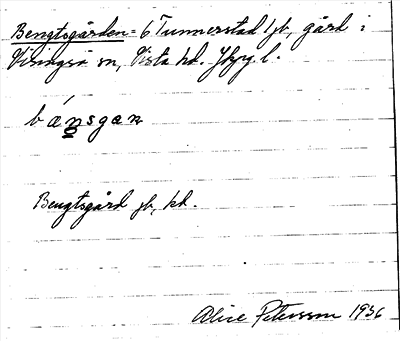 Bengtsgården = 6 Tunnerstad jb, gård i
Visingsö sn, Vista hd. Jkpg l.
báṉsgan
Bengtsgård jb, kd.
Alice Petersson 1936